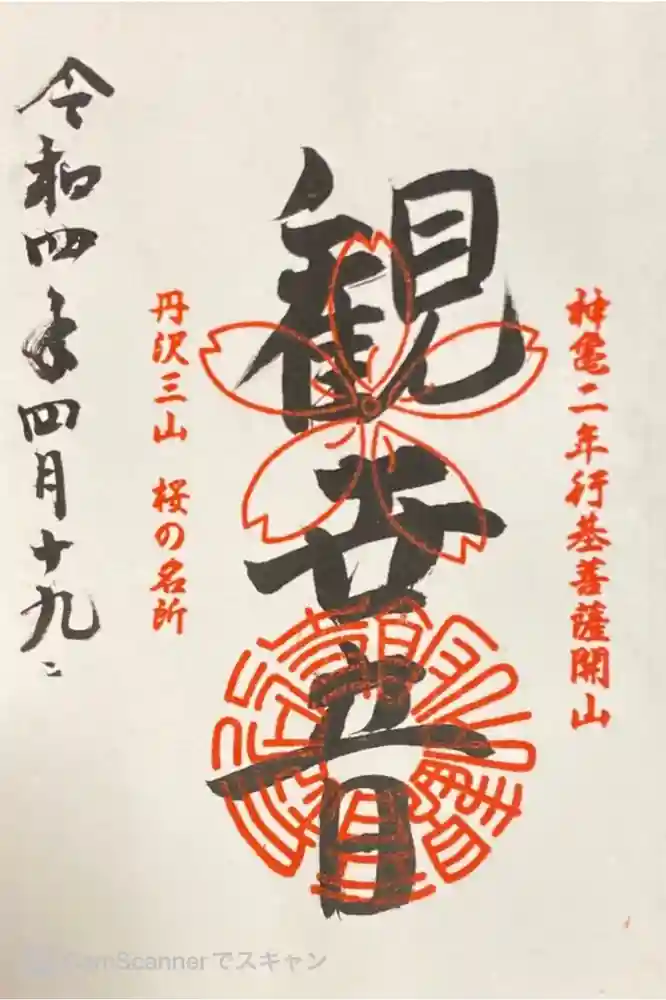 神亀二年行基菩薩開山
観世音
丹沢三山 桜の名所
令和四年四月十九
CamScannerでスキャン